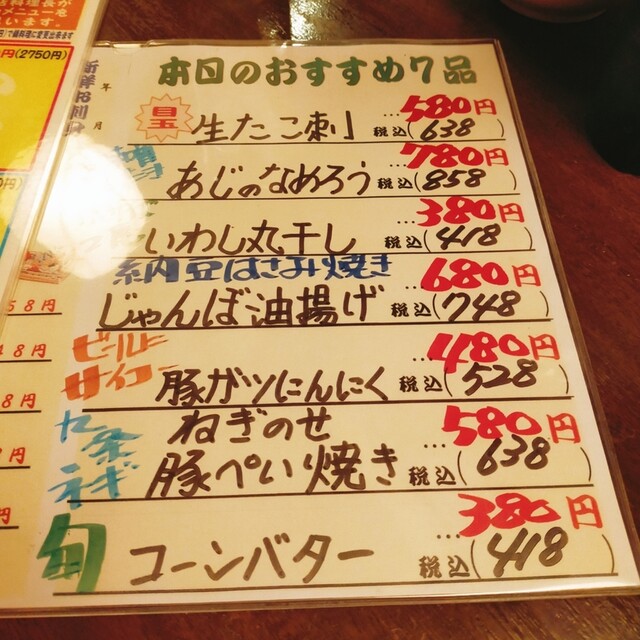 本日のおすすめ7品
目玉
生たこ刺
…580円
税込(638)
あじのなめろう
…780円
税込(858)
いわし丸干し
…380円
税込(418)
納豆はさみ焼き
じゃんぼ油揚げ
…680円
税込(748)
ビールに
サイコー
豚ガツにんにく
…480円
税込(528)
九条
ネギ
ねぎのせ
豚ぺい焼き
…580円
税込(638)
旬
コーンバター
…380円
税込(418)
年
月
(2750円)
メニューを
います。
58円
48円
8円
8円
円